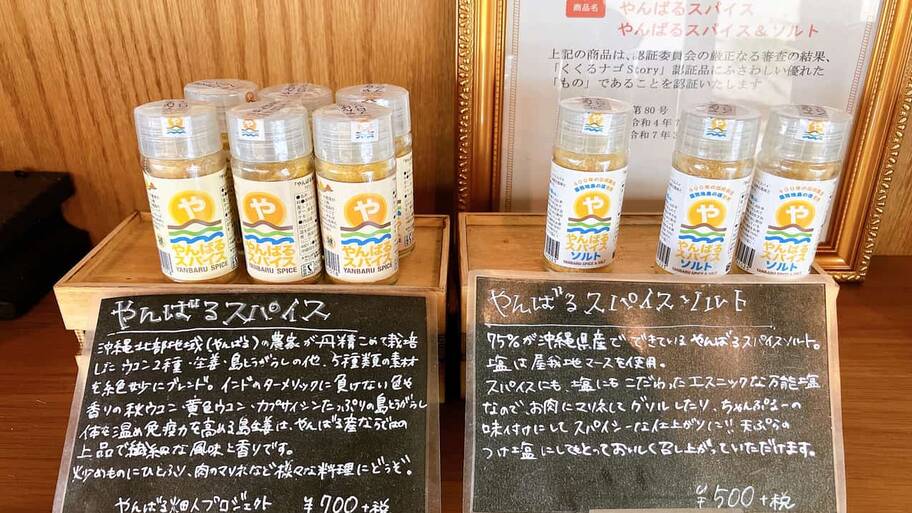 商品名 やんばるスパイス
やんばるスパイス&ソルト
上記の商品は、認証委員会の厳正なる審査の結果、
「くくるナゴStory」認証品にふさわしい優れた
「もの」であることを認証いたします
第80号
令和4年7
令和7年3
や
やんばる
スパイス
YANBARU SPICE
や
やんばる
スパイス
YANBARU SPICE
や
やんばる
スパイス
YANBARU SPICE
や
やんばる
スパイス
ソルト
や
やんばる
スパイス
ソルト
や
やんばる
スパイス
ソルト
やんばるスパイス
沖縄北部地域(やんばる)の農家が丹精こめて栽培
したウコン2種・生姜・島とうがらしの他、5種類の素材
を絶妙にブレンド。インドのターメリックに負けない色や
香りの秋ウコン・黄色ウコン・カプサイシンたっぷりの島とうがらし
体を温め免疫力を高める島生姜は、やんばる産ならではの
上品で繊細な風味と香りです。
炒めものにひとふり、肉のマリネなど様々な料理にどうぞ。
やんばる畑人プロジェクト ¥700+税
やんばるスパイス・ソルト
75%が沖縄県産でできているやんばるスパイスソルト。
塩は屋我地マースを使用。
スパイスにも塩にもこだわったエスニックな万能塩
なので、お肉にマリネしてグリルしたり、ちゃんぷるーの
味付けにしてスパイシーな仕上がりに!! 天ぷらの
つけ塩にしてもとってもおいしく召し上がっていただけます。
¥500+税